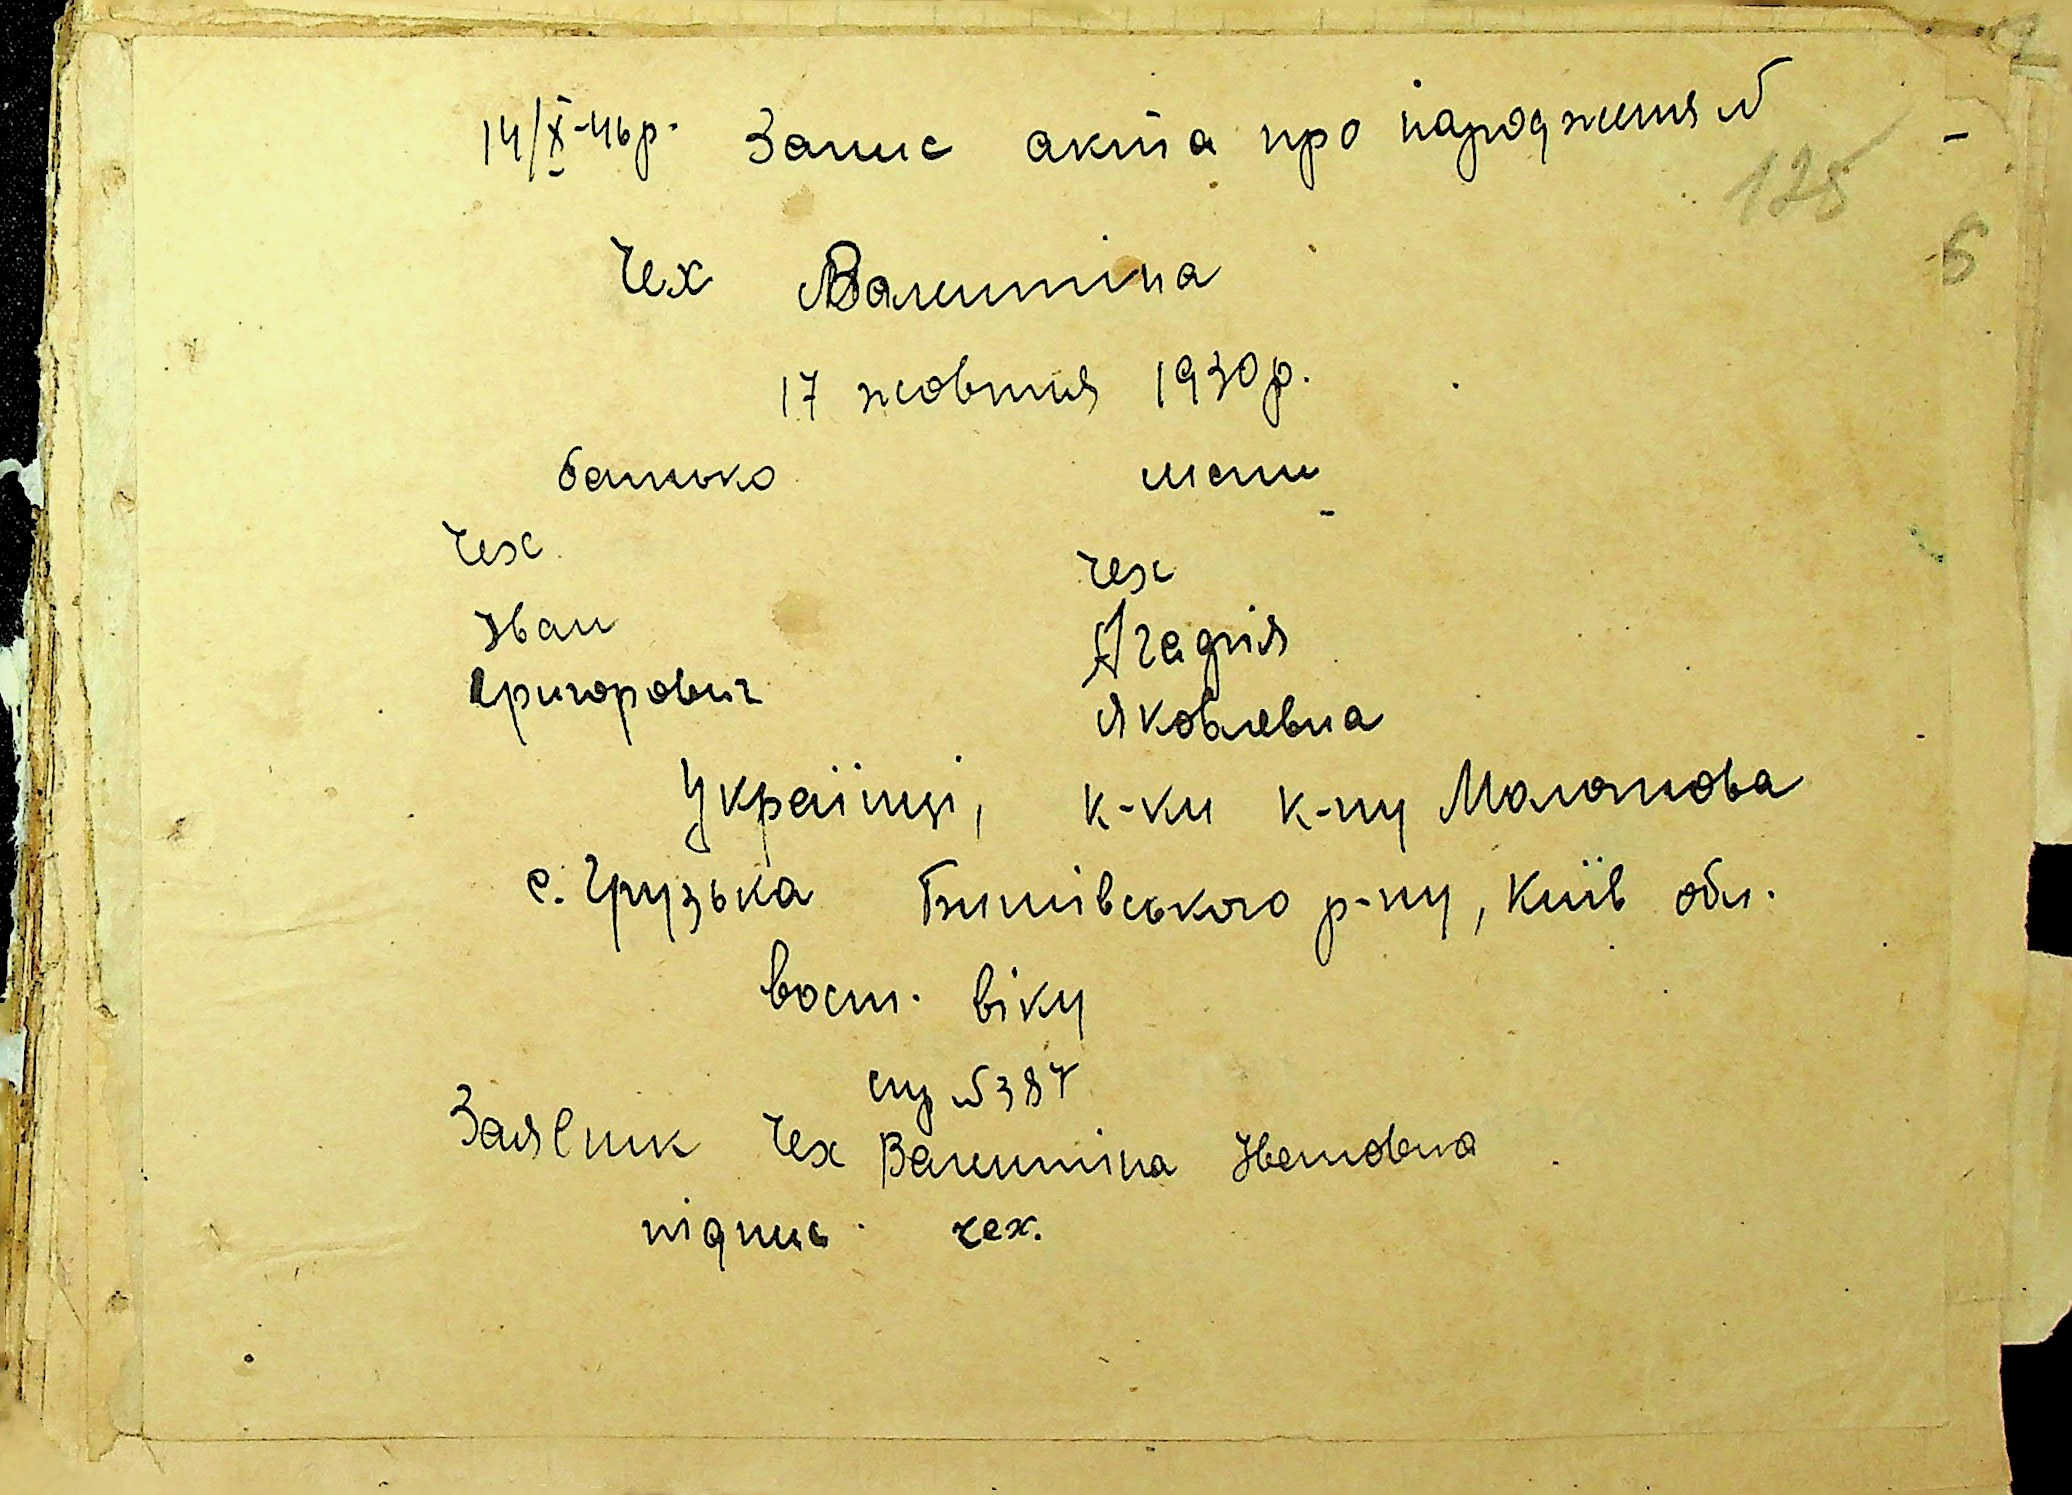 14/X-46р. Запис акта про народження №
125
6
Чех Валентіна
17 жовтня 1930р.
батько мати
Чех Чех
Іван Агафія
Григорович Яковлевна
Українці, к-ки к-пу Молотова
с. Грузька Бишівського р-ну, Київ обл.
вост. віку
спр №387
Заявник Чех Валентіна Івановна
підпис чех.